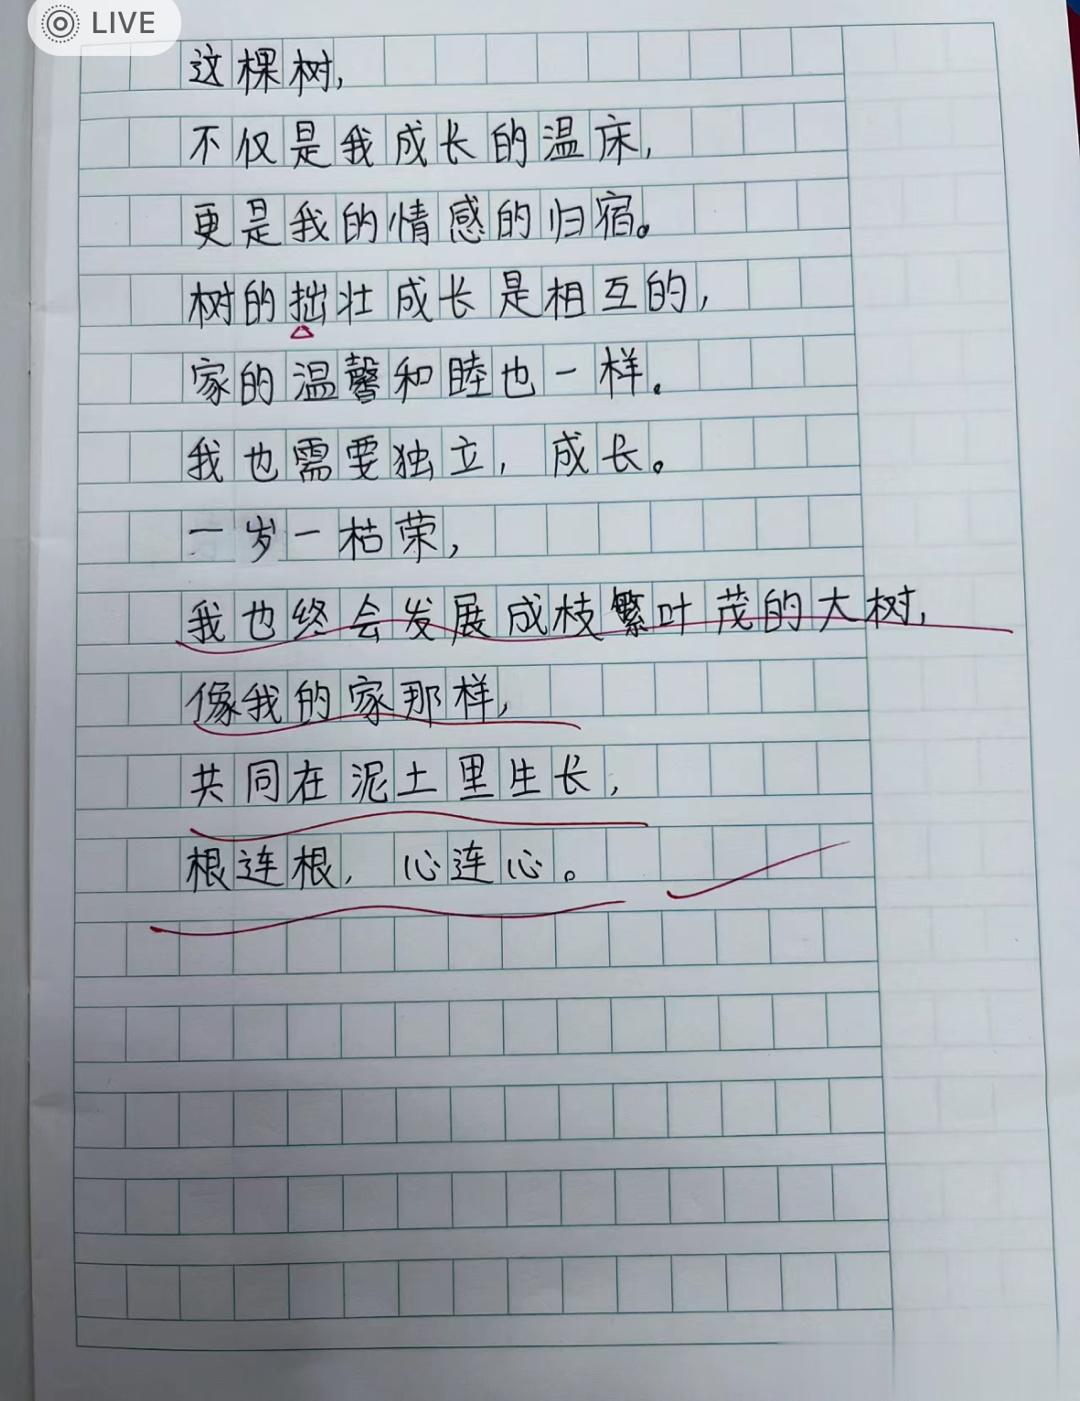 LIVE
这棵树,
不仅是我成长的温床,
更是我的情感的归宿。
树的拙壮成长是相互的,
家的温馨和睦也一样。
我也需要独立,成长。
一岁一枯荣,
我也终会发展成枝繁叶茂的大树,
像我的家那样,
共同在泥土里生长,
根连根,心连心。